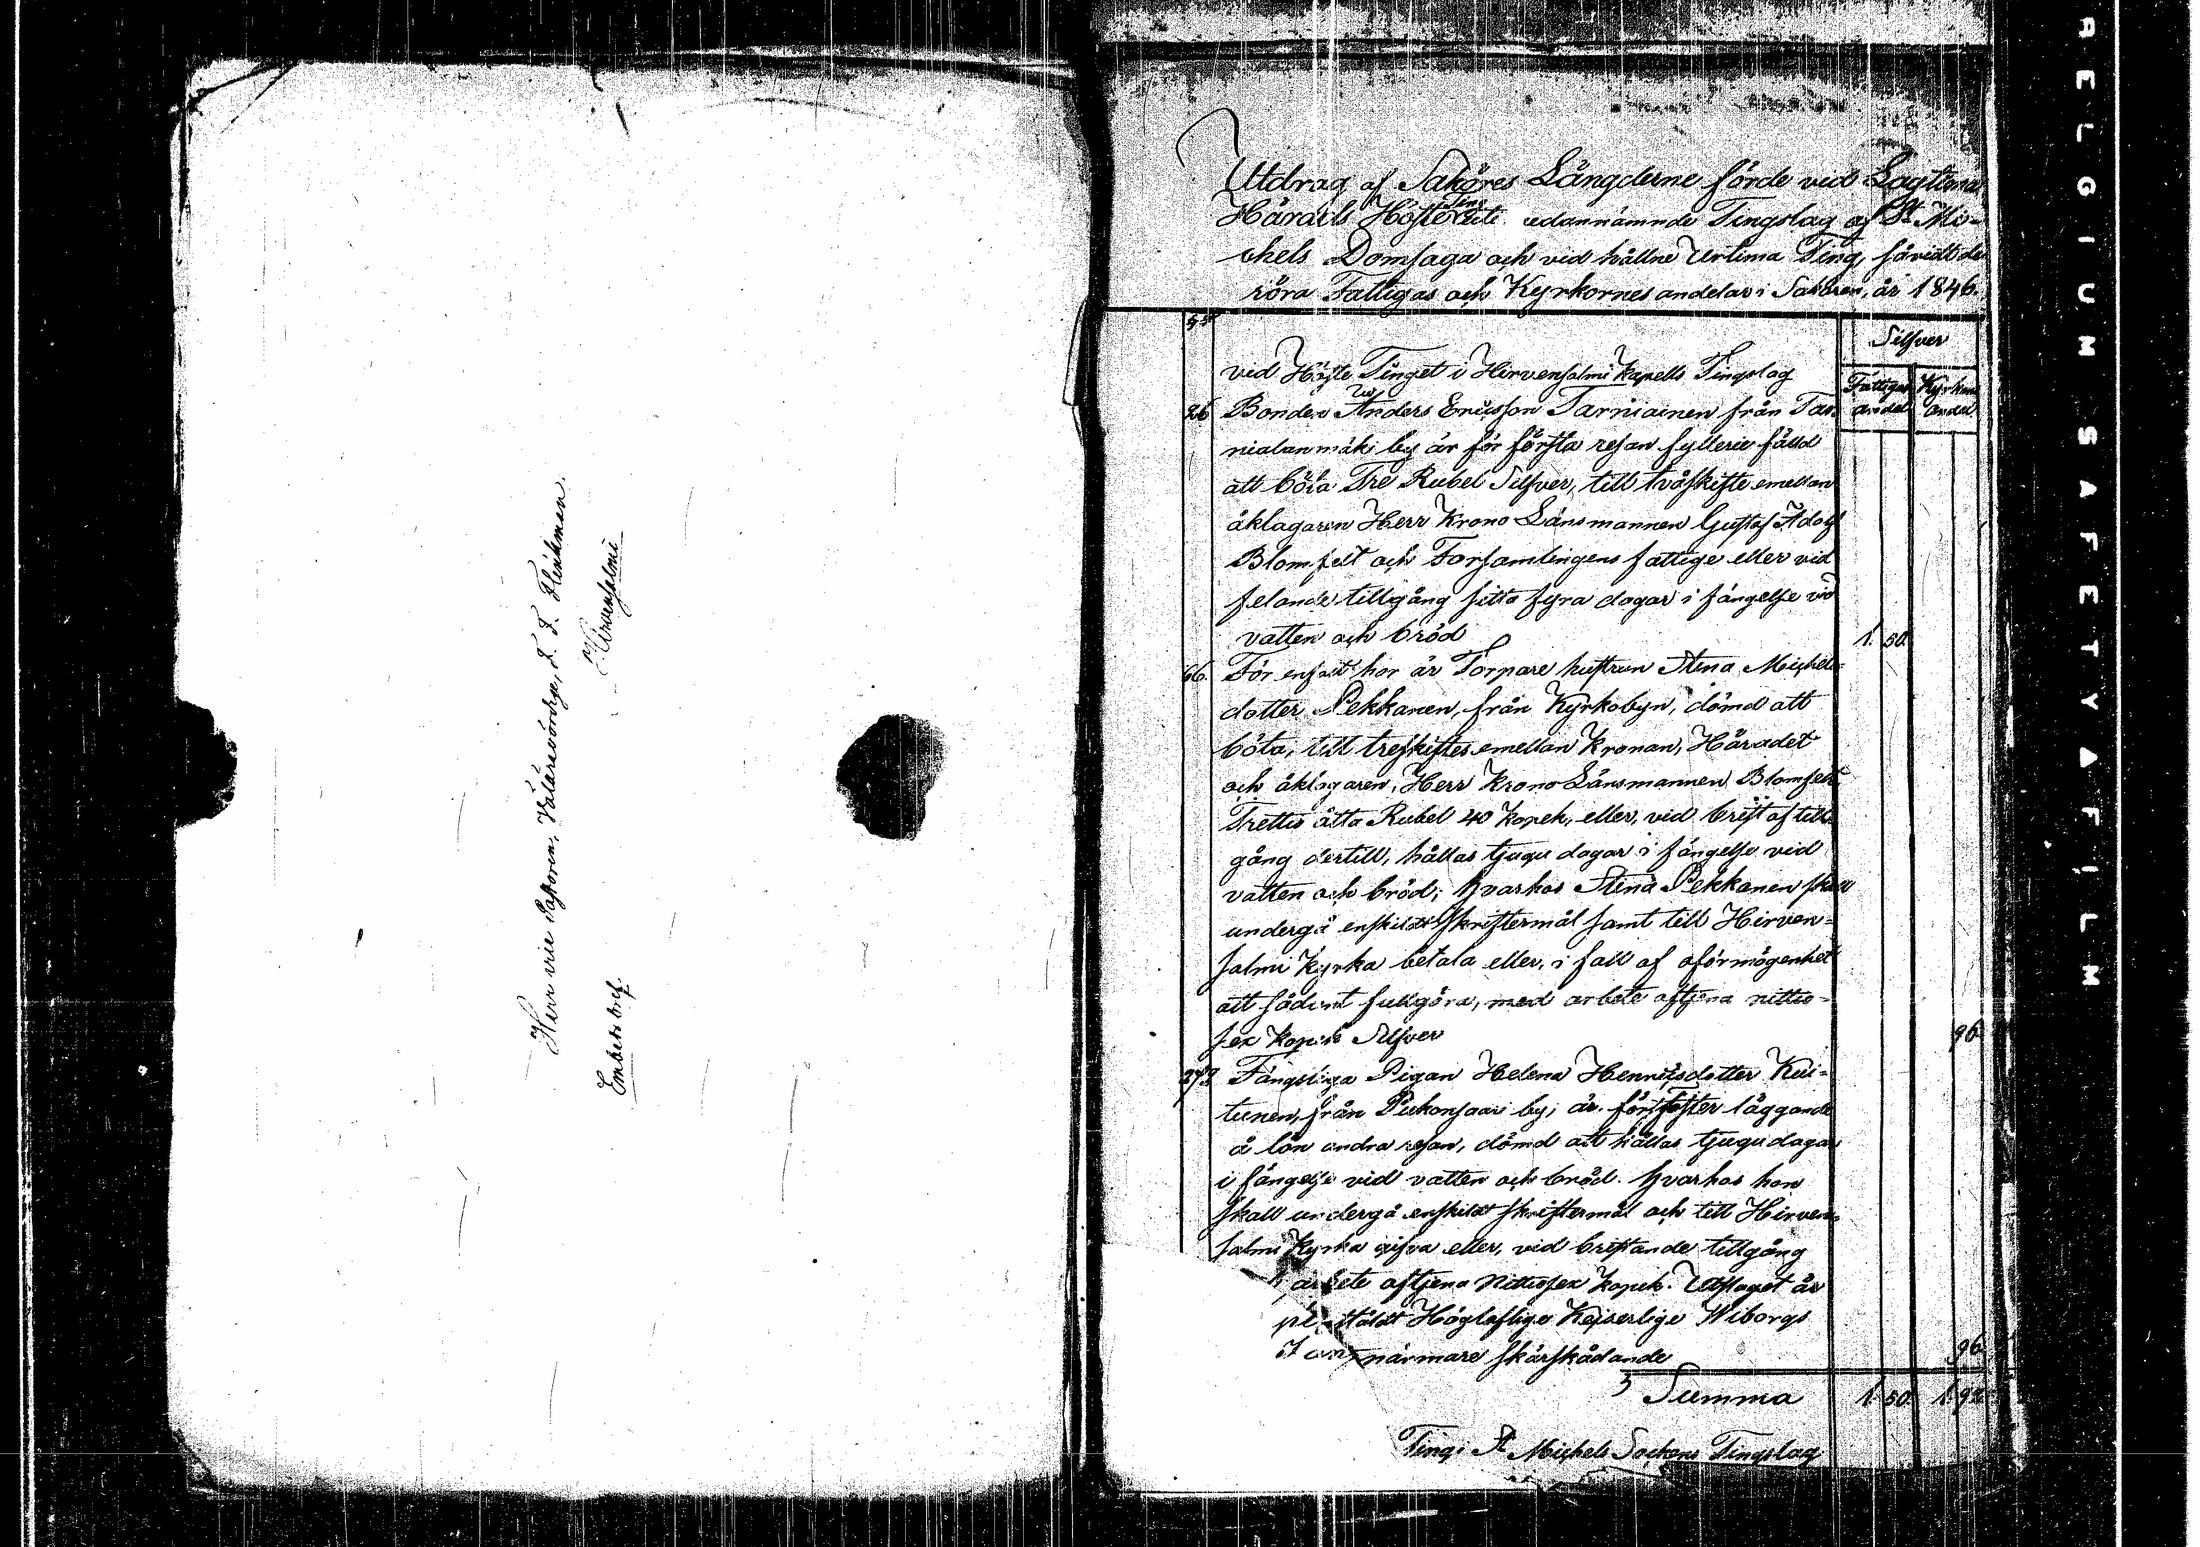 Herr vice Pastoren, Välärevördige, F. F. Flinkman.
Hirvensalmi
Embetsbref.
Utdrag af Saköres Längderne förde vid Lagtima
Härads Höste Ting uti nedannämnde Tingslag af St. Mi-
chels Domsaga och vid hållne Urtima Ting, såvidt de
röra Fattigas och Kyrkornes andelar i Sakören, år 1846.
§§
Silfver
vid Höste Tinget i Hirvensalmi Kapells Tingslag
Fattigas Kyrkans
andel andel
26 Bonden Anders Ericsson Tarniainen från Tar-
nialanmäki by är för första resan fylleri fälld
att böta Tre Rubel Silfver, till tvåskifte emellan
åklagaren Herr Krono Länsmannen Gustaf Adolf
Blomfelt och Församlingens fattige eller vid
felande tillgång sitta fyra dagar i fängelse vid
vatten och bröd 1. 50.
66. För enfalt hor är Torpare hustrun Stina Michels-
dotter Pekkanen, från Kyrkobyn, dömd att
böta, till treskiftes emellan Kronan, Häradet
och åklagaren, Herr Krono Länsmannen Blomfelt
Trettio åtta Rubel 40 Kopek, eller, vid brist af till-
gång dertill, hållas tjugu dagar i fängelse vid
vatten och bröd; hvarhos Stina Pekkanen skall
undergå enskildt skriftermål samt till Hirven-
salmi Kyrka betala eller, i fall af oförmögenhet
att sådant fullgöra, med arbete aftjena nittio-
sex kopek Silfver 96.
Fängsliga Pigan Helena Henriksdotter Kui-
tunen, från Puukonsaari by, är för foster läggande
å lön andra resan, dömd att hållas tjugu dagar
i fängelse vid vatten och bröd. hvarhos hon
skall undergå enskildt skriftermål och till Hirven-
salmi Kyrka gifva eller, vid bristande tillgång
arbete aftjena Nittiosex kopek. Utslaget är
ståldt Högloflige Kejserlige Wiborgs
närmare skärskådande 96.
Summa 1. 50. 1. 92.
Ting i St Michels Sockens Tingslag
RELGIUM SAFETY FILM